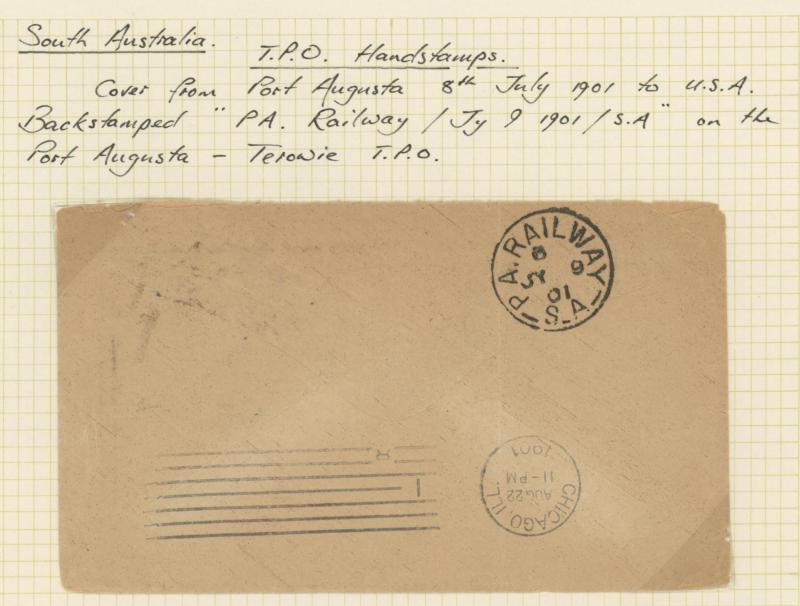 South Australia.
T.P.O. Handstamps.
Cover from Port Augusta 8th July 1901 to U.S.A.
Backstamped "P.A. Railway / Jy 9 1901 / S.A" on the
Port Augusta - Terowie T.P.O.
P.A. RAILWAY
9
JY
01
S.A.
R
1
CHICAGO, ILL.
AUG 22
11-PM
1901